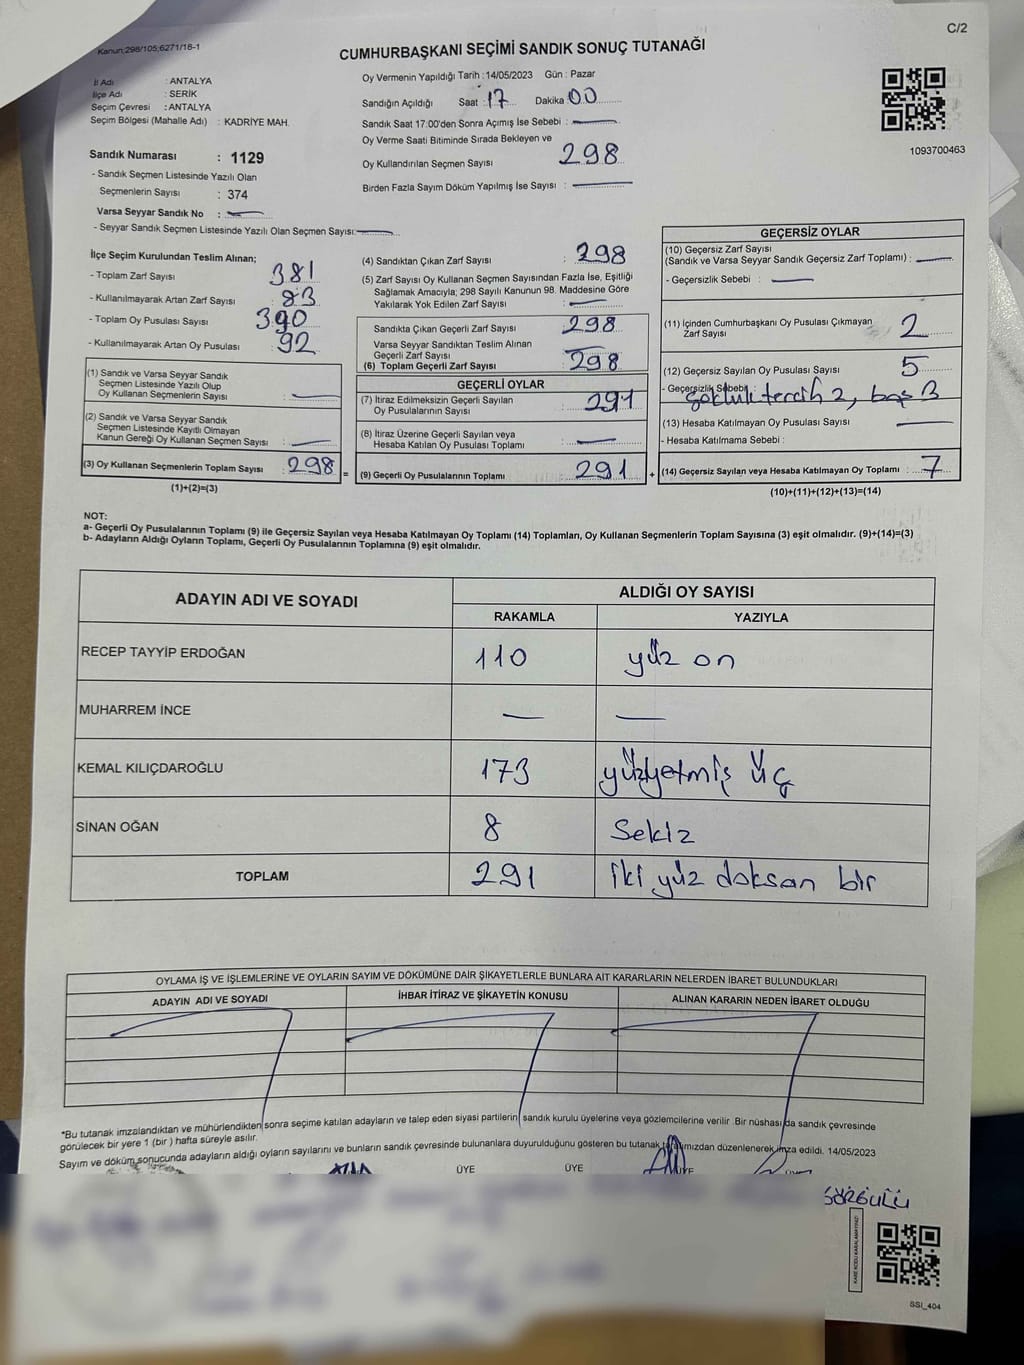 C/2
Kanun;298/105;6271/18-1
CUMHURBAŞKANI SEÇİMİ SANDIK SONUÇ TUTANAĞI
İl Adı : ANTALYA
İlçe Adı : SERİK
Seçim Çevresi : ANTALYA
Seçim Bölgesi (Mahalle Adı) : KADRİYE MAH.
Sandık Numarası : 1129
- Sandık Seçmen Listesinde Yazılı Olan
Seçmenlerin Sayısı : 374
Varsa Seyyar Sandık No :
- Seyyar Sandık Seçmen Listesinde Yazılı Olan Seçmen Sayısı:
Oy Vermenin Yapıldığı Tarih : 14/05/2023 Gün : Pazar
Sandığın Açıldığı Saat : 17 Dakika : 00
Sandık Saat 17:00'den Sonra Açımış İse Sebebi :
Oy Verme Saati Bitiminde Sırada Bekleyen ve
Oy Kullandırılan Seçmen Sayısı 298
Birden Fazla Sayım Döküm Yapılmış İse Sayısı :
1093700463
İlçe Seçim Kurulundan Teslim Alınan;
- Toplam Zarf Sayısı 381
- Kullanılmayarak Artan Zarf Sayısı : 83
- Toplam Oy Pusulası Sayısı 390
- Kullanılmayarak Artan Oy Pusulası 92
(1) Sandık ve Varsa Seyyar Sandık
Seçmen Listesinde Yazılı Olup
Oy Kullanan Seçmenlerin Sayısı :
(2) Sandık ve Varsa Seyyar Sandık
Seçmen Listesinde Kayıtlı Olmayan
Kanun Gereği Oy Kullanan Seçmen Sayısı :
(3) Oy Kullanan Seçmenlerin Toplam Sayısı : 298 =
(1)+(2)=(3)
(4) Sandıktan Çıkan Zarf Sayısı : 298
(5) Zarf Sayısı Oy Kullanan Seçmen Sayısından Fazla İse, Eşitliği
Sağlamak Amacıyla; 298 Sayılı Kanunun 98. Maddesine Göre
Yakılarak Yok Edilen Zarf Sayısı :
Sandıkta Çıkan Geçerli Zarf Sayısı : 298
Varsa Seyyar Sandıktan Teslim Alınan
Geçerli Zarf Sayısı :
(6) Toplam Geçerli Zarf Sayısı : 298
GEÇERLİ OYLAR
(7) İtiraz Edilmeksizin Geçerli Sayılan
Oy Pusulalarının Sayısı : 291
(8) İtiraz Üzerine Geçerli Sayılan veya
Hesaba Katılan Oy Pusulası Toplamı :
(9) Geçerli Oy Pusulalarının Toplamı : 291 +
GEÇERSİZ OYLAR
(10) Geçersiz Zarf Sayısı
(Sandık ve Varsa Seyyar Sandık Geçersiz Zarf Toplamı) :
- Geçersizlik Sebebi :
(11) İçinden Cumhurbaşkanı Oy Pusulası Çıkmayan
Zarf Sayısı : 2
(12) Geçersiz Sayılan Oy Pusulası Sayısı : 5
- Geçersizlik Sebebi : çokluk tercih 2, boş 3
(13) Hesaba Katılmayan Oy Pusulası Sayısı
- Hesaba Katılmama Sebebi :
(14) Geçersiz Sayılan veya Hesaba Katılmayan Oy Toplamı : 7
(10)+(11)+(12)+(13)=(14)
NOT:
a- Geçerli Oy Pusulalarının Toplamı (9) ile Geçersiz Sayılan veya Hesaba Katılmayan Oy Toplamı (14) Toplamları, Oy Kullanan Seçmenlerin Toplam Sayısına (3) eşit olmalıdır. (9)+(14)=(3)
b- Adayların Aldığı Oyların Toplamı, Geçerli Oy Pusulalarının Toplamına (9) eşit olmalıdır.
ADAYIN ADI VE SOYADI ALDIĞI OY SAYISI
RAKAMLA YAZIYLA
RECEP TAYYİP ERDOĞAN 110 yüz on
MUHARREM İNCE
KEMAL KILIÇDAROĞLU 173 yüzyetmiş üç
SİNAN OĞAN 8 Sekiz
TOPLAM 291 iki yüz doksan bir
OYLAMA İŞ VE İŞLEMLERİNE VE OYLARIN SAYIM VE DÖKÜMÜNE DAİR ŞİKAYETLERLE BUNLARA AİT KARARLARIN NELERDEN İBARET BULUNDUKLARI
ADAYIN ADI VE SOYADI İHBAR İTİRAZ VE ŞİKAYETİN KONUSU ALINAN KARARIN NEDEN İBARET OLDUĞU
*Bu tutanak imzalandıktan ve mühürlendikten sonra seçime katılan adayların ve talep eden siyasi partilerin sandık kurulu üyelerine veya gözlemcilerine verilir .Bir nüshası da sandık çevresinde
görülecek bir yere 1 (bir ) hafta süreyle asılır.
Sayım ve döküm sonucunda adayların aldığı oyların sayılarını ve bunların sandık çevresinde bulunanlara duyurulduğunu gösteren bu tutanak tarafımızdan düzenlenerek imza edildi. 14/05/2023
ÜYE ÜYE ÜYE
SÖRGÜLÜ
SSI_404